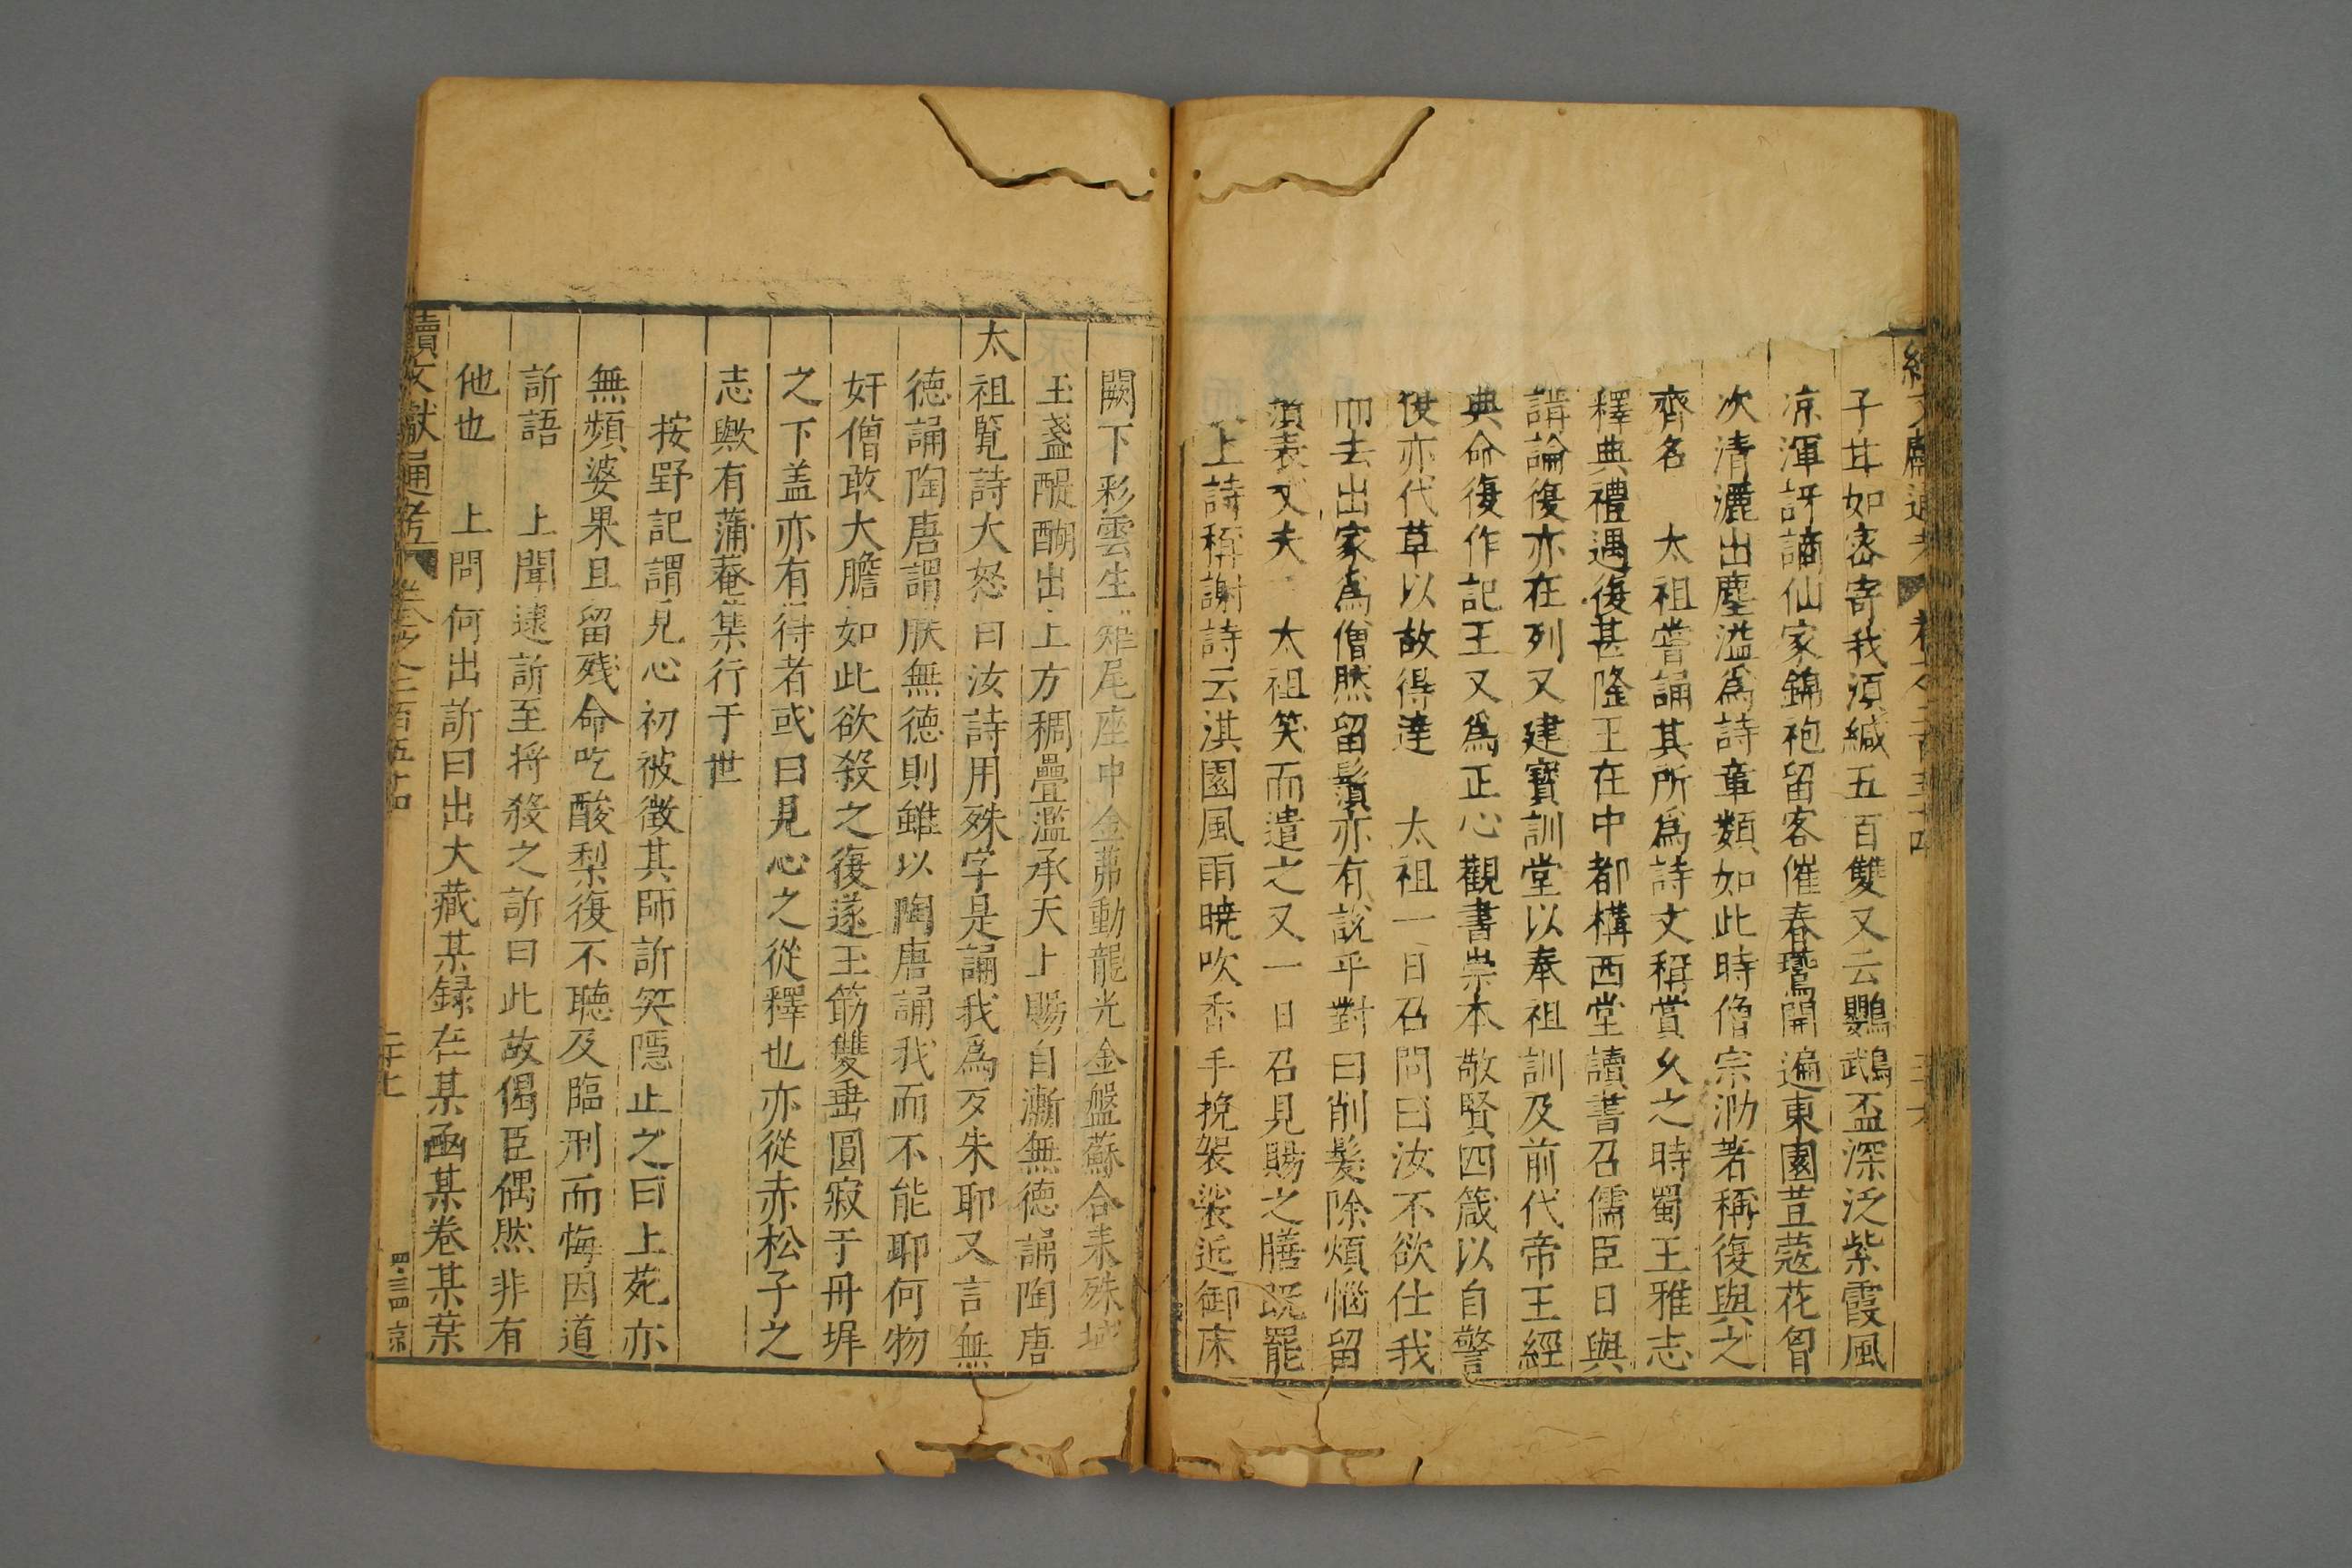 子甘如密寄我須緘五百雙又云鸚鵡盃深泛紫霞風
凉渾訝謫仙家錦袍留客催春鶯開遍東園荳蔲花曾
次清灑出塵溢爲詩章類如此時僧宗泐著稱復與之
齊名　太祖嘗誦其所爲詩文稱賞久之時蜀王雅志
釋典禮遇復甚隆王在中都構西堂讀書召儒臣日與
講論復亦在列又建寶訓堂以奉祖訓及前代帝王經
典命復作記王又爲正心觀書崇本敬賢四箴以自警
復亦代草以故得達　太祖一日召問曰汝不欲仕我
而去出家爲僧然留鬚亦有說乎對曰削髮除煩惱留
鬚表丈夫　太祖笑而遣之又一日召見賜之膳既罷
上詩稱謝詩云淇園風雨曉吹香手挽袈裟近御床
闕下彩雲生雉尾座中金茀動龍光金盤蘇合來殊域
玉盞醍醐出上方稠疊濫承天上賜自漸無德誦陶唐
太祖覽詩大怒曰汝詩用殊字是謂我爲歹朱耶又言無
德誦陶唐謂朕無德則雖以陶唐誦我而不能耶何物
奸僧敢大膽如此欲殺之復遂玉筯雙垂圓寂于丹墀
之下盖亦有得者或曰見心之從釋也亦從赤松子之
志歟有蒲菴集行于世
按野記謂見心初被徵其師訢笑隱止之曰上苑亦
無頻婆果且留殘命吃酸梨復不聽及臨刑而悔因道
訢語　上聞逮訢至将殺之訢曰此故偈臣偶然非有
他也　上問何出訢曰出大藏某録在某函某卷某葉
續文獻通考　卷之二百五十四